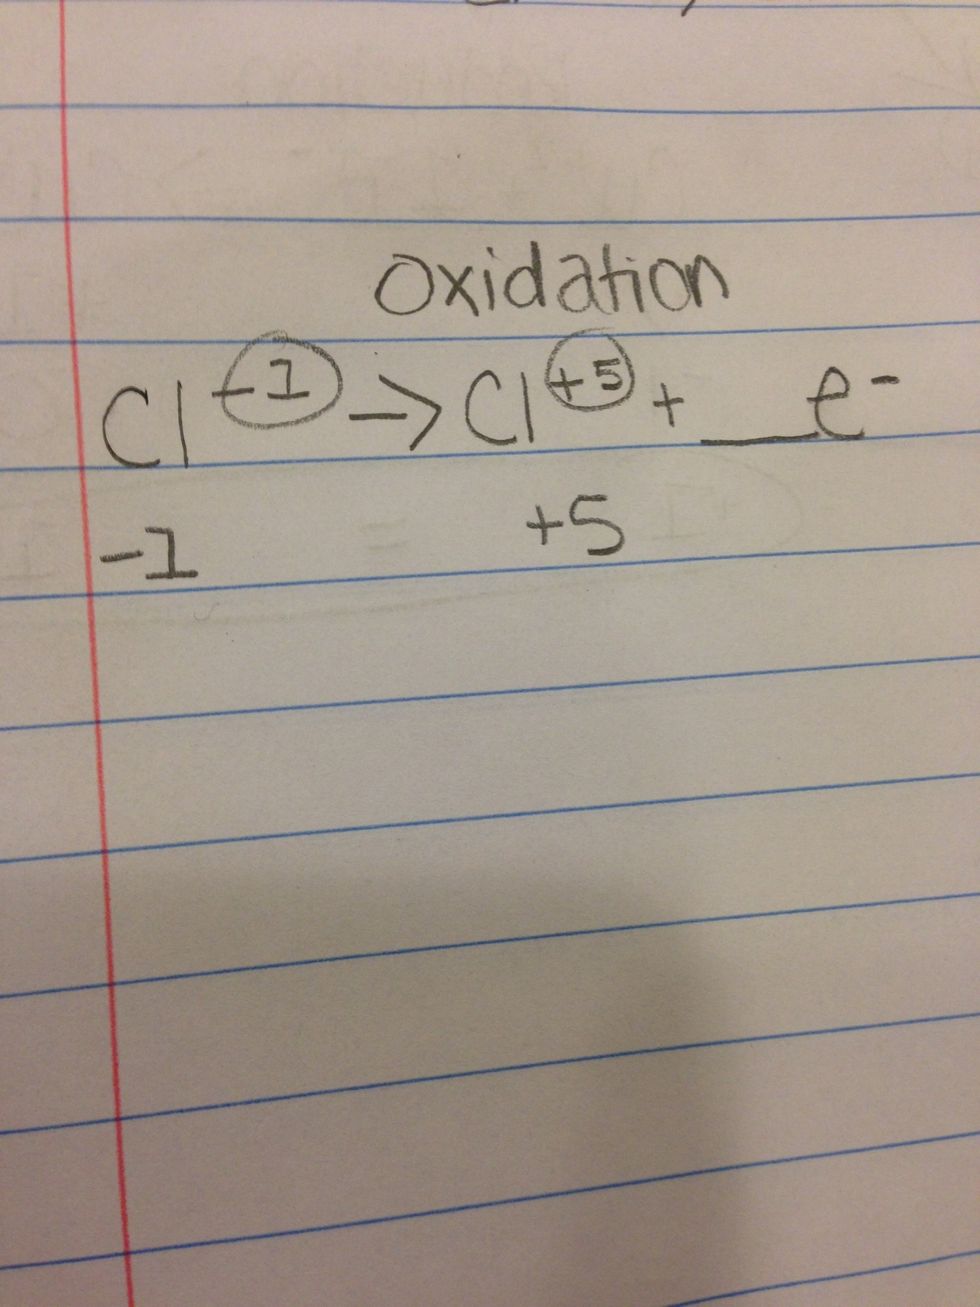 Oxidation
Cl⁻¹ → Cl⁺⁵ + __e⁻
-1 +5